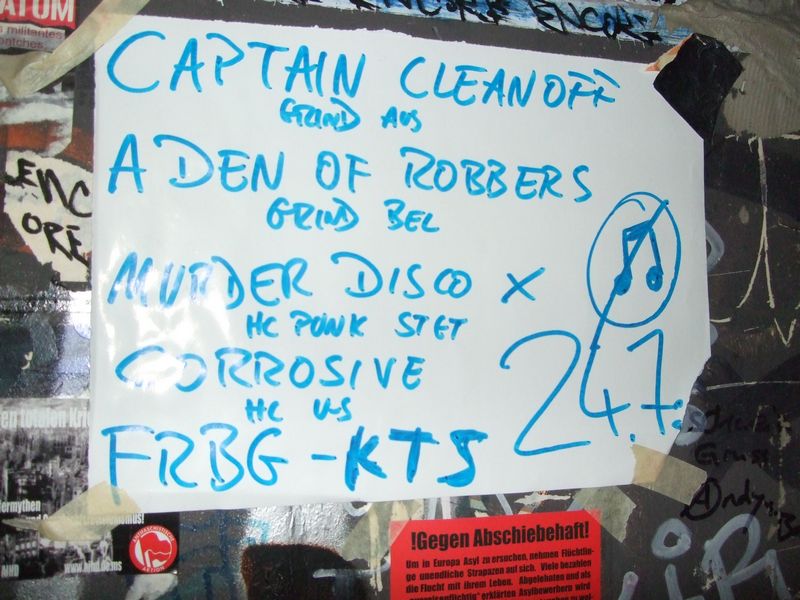 ATOM
militantes
ENCORE ENCORE
CAPTAIN CLEANOFF
GRIND AUS
A DEN OF ROBBERS
GRIND BEL
MURDER DISCO X
HC PUNK STGT
CORROSIVE
HC VS
FRBG - KTS
24.7.
ENCORE
en totalen Kri
dermythen
ANTIFASCHISTISCHE AKTION
!Gegen Abschiebehaft!
Um in Europa Asyl zu ersuchen, nehmen Flüchtlin-
ge unendliche Strapazen auf sich. Viele bezahlen
die Flucht mit ihrem Leben. Abgelehnten und als
erklärten Asylbewerbern wird